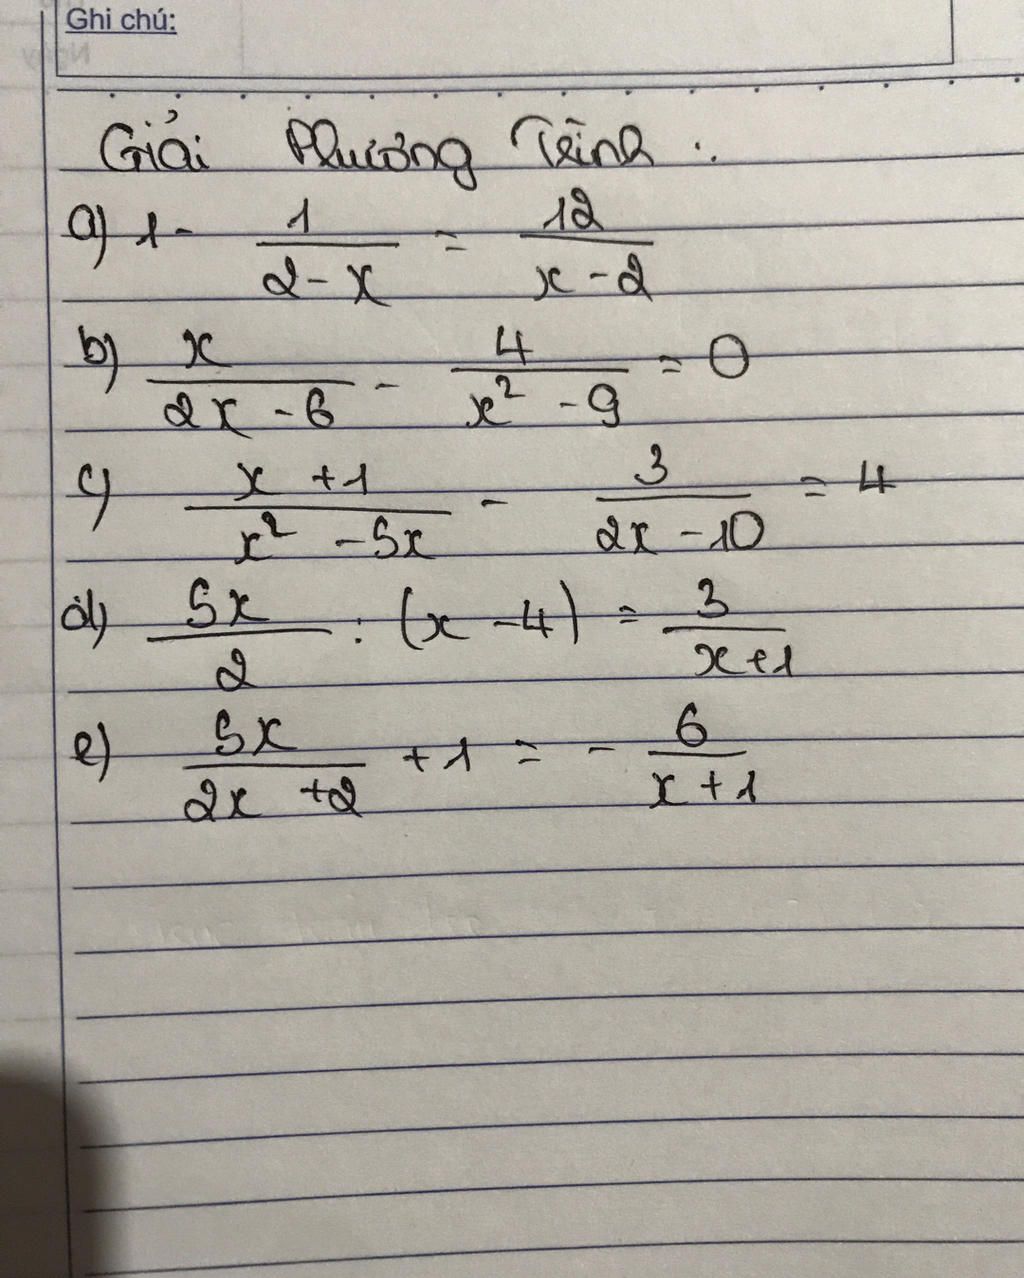 Ghi chú:
Giải Phương Trình :
a) 1 - 1/(2 - x) = 12/(x - 2)
b) x/(2x - 6) - 4/(x² - 9) = 0
c) (x + 1)/(x² - 5x) - 3/(2x - 10) = 4
d) 5x/2 : (x - 4) = 3/(x + 1)
e) 5x/(2x + 2) + 1 = - 6/(x + 1)